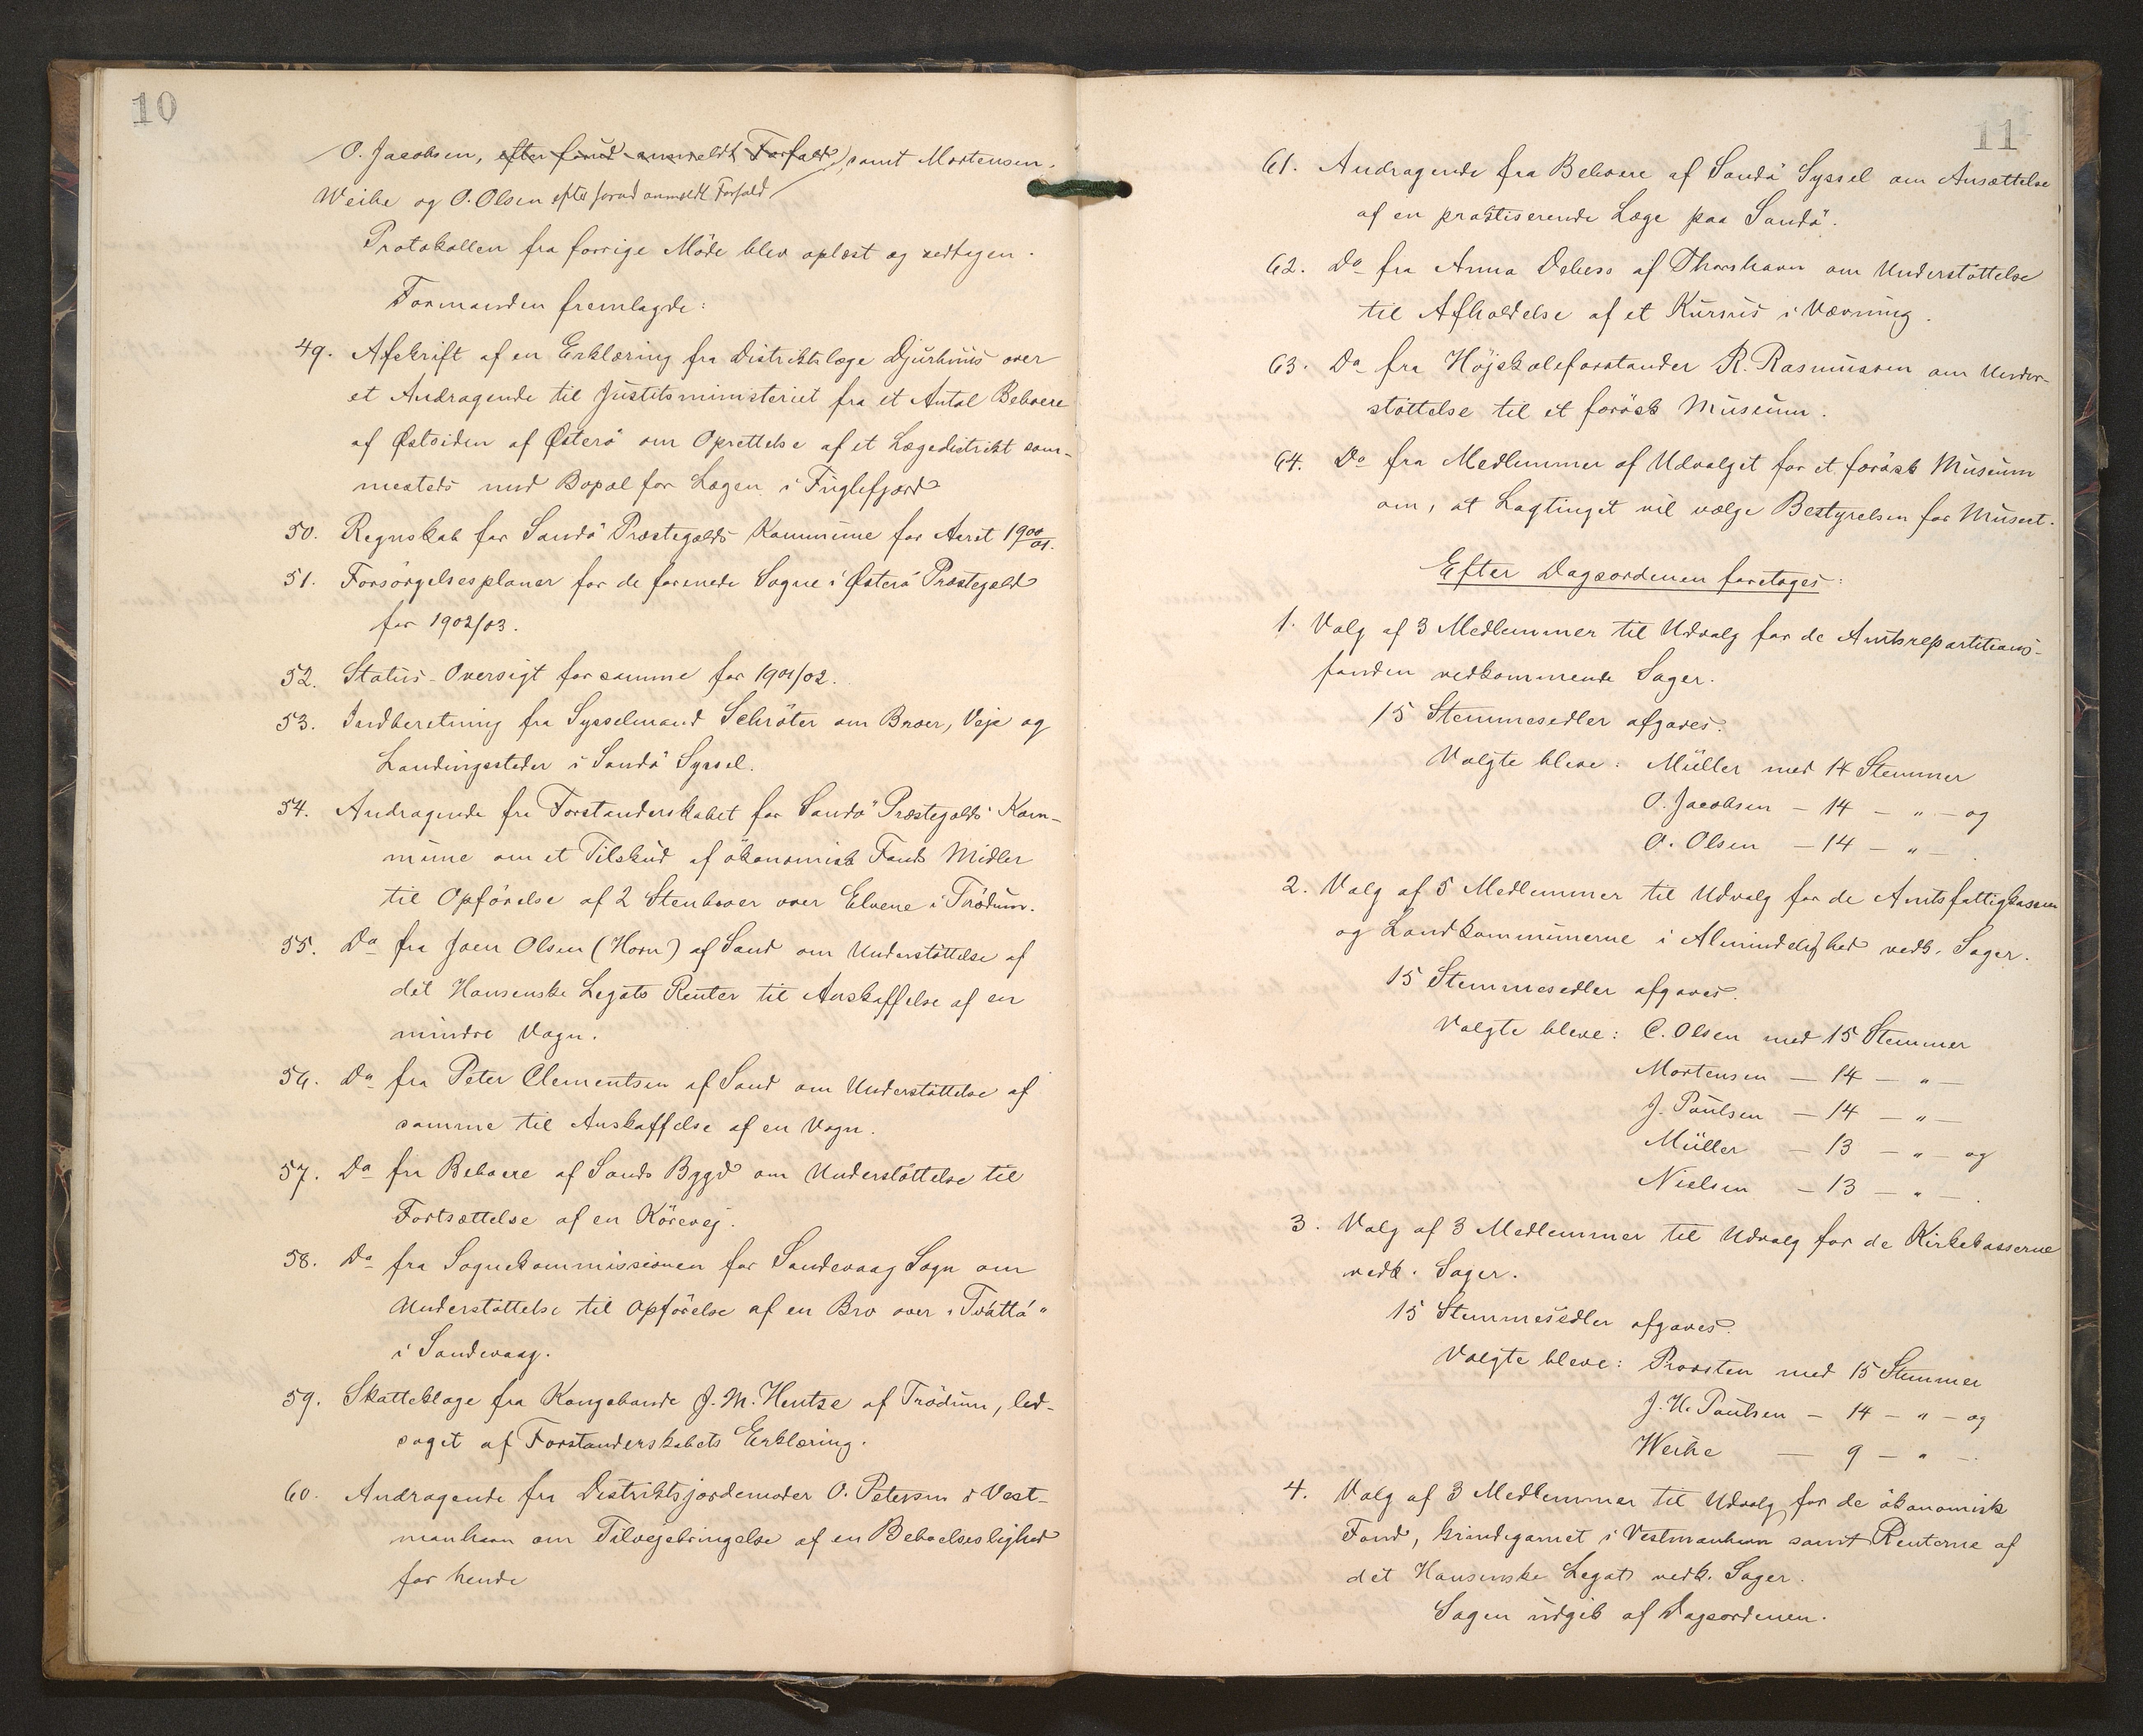 10
O. Jacobsen, efter forud anmeldt Forfald, samt Mortensen,
Weihe og O. Olsen efter forud anmeldt Forfald
Protokollen fra forrige Möde blev oplæst og vedtagen.
Formanden fremlagde:
49. Afskrift af en Erklæring fra Distriktslæge Djurhuus over
et Andragende til Justitsministeriet fra et Antal Beboere
af Østsiden af Østerö om Oprettelse af et Lægedistrikt sam-
mesteds med Bopæl for Lægen i Fuglefjord
50. Regnskab for Sandö Præstegælds Kommune for Aaret 1900/01.
51. Forsörgelsesplaner for de forenede Sogne i Østerö Præstegæld
for 1902/03.
52. Status-Oversigt for samme for 1901/02.
53. Indberetning fra Sysselmand Schröter om Broer, Veje og
Landingssteder i Sandö Syssel.
54. Andragende fra Forstanderskabet for Sandö Præstegælds Kom-
mune om et Tilskud af ökonomisk Fonds Midler
til Opförelse af 2 Stenbroer over Elvene i Trödum.
55. Do fra Joen Olsen (Horn) af Sand om Understöttelse af
det Hansenske Legats Renter til Anskaffelse af en
mindre Vogn.
56. Do fra Peter Clementsen af Sand om Understöttelse af
samme til Anskaffelse af en Vogn.
57. Do fra Beboere af Sands Bygd om Understöttelse til
Fortsættelse af en Körevej.
58. Do fra Sognekommissionen for Sandevaag Sogn om
Understöttelse til Opförelse af en Bro over "Tváttá"
i Sandevaag.
59. Skatteklage fra Kongebonde J. M. Hentze af Trödum, led-
saget af Forstanderskabets Erklæring.
60. Andragende fra Distriktsjordemoder O. Petersen i Vest-
manhavn om Tilvejebringelse af en Beboelseslighed
for hende
11
61. Andragende fra Beboere af Sandö Syssel om Ansættelse
af en praktiserende Læge paa Sandö.
62. Do fra Anna Debess af Thorshavn om Understöttelse
til Afholdelse af et Kursus i Vævning.
63. Do fra Höjskoleforstander R. Rasmussen om Under-
stöttelse til et færösk Museum.
64. Do fra Medlemmer af Udvalget for et færösk Museum
om, at Lagtinget vil vælge Bestyrelsen for Museet.
Efter Dagsordenen foretoges:
1. Valg af 3 Medlemmer til Udvalg for de Amtsrepartitions-
fonden vedkommende Sager.
15 Stemmesedler afgaves.
Valgte bleve: Müller med 14 Stemmer
O. Jacobsen - 14 - " - og
O. Olsen - 14 - " - .
2. Valg af 5 Medlemmer til Udvalg for de Amtsfattigkassen
og Landkommunerne i Almindelighed vedk. Sager.
15 Stemmesedler afgaves.
Valgte bleve: C. Olsen med 15 Stemmer
Mortensen - 14 - " -
J. Poulsen - 14 - " -
Müller - 13 - " - og
Nielsen - 13 - " - .
3. Valg af 3 Medlemmer til Udvalg for de Kirkekasserne
vedk. Sager.
15 Stemmesedler afgaves.
Valgte bleve: Provsten med 15 Stemmer
J. H. Poulsen - 14 - " - og
Weihe - 9 - " - .
4. Valg af 3 Medlemmer til Udvalg for de ökonomisk
Fond, Grindegarnet i Vestmanhavn samt Renterne af
det Hansenske Legat vedk. Sager.
Sagen udgik af Dagsordenen.